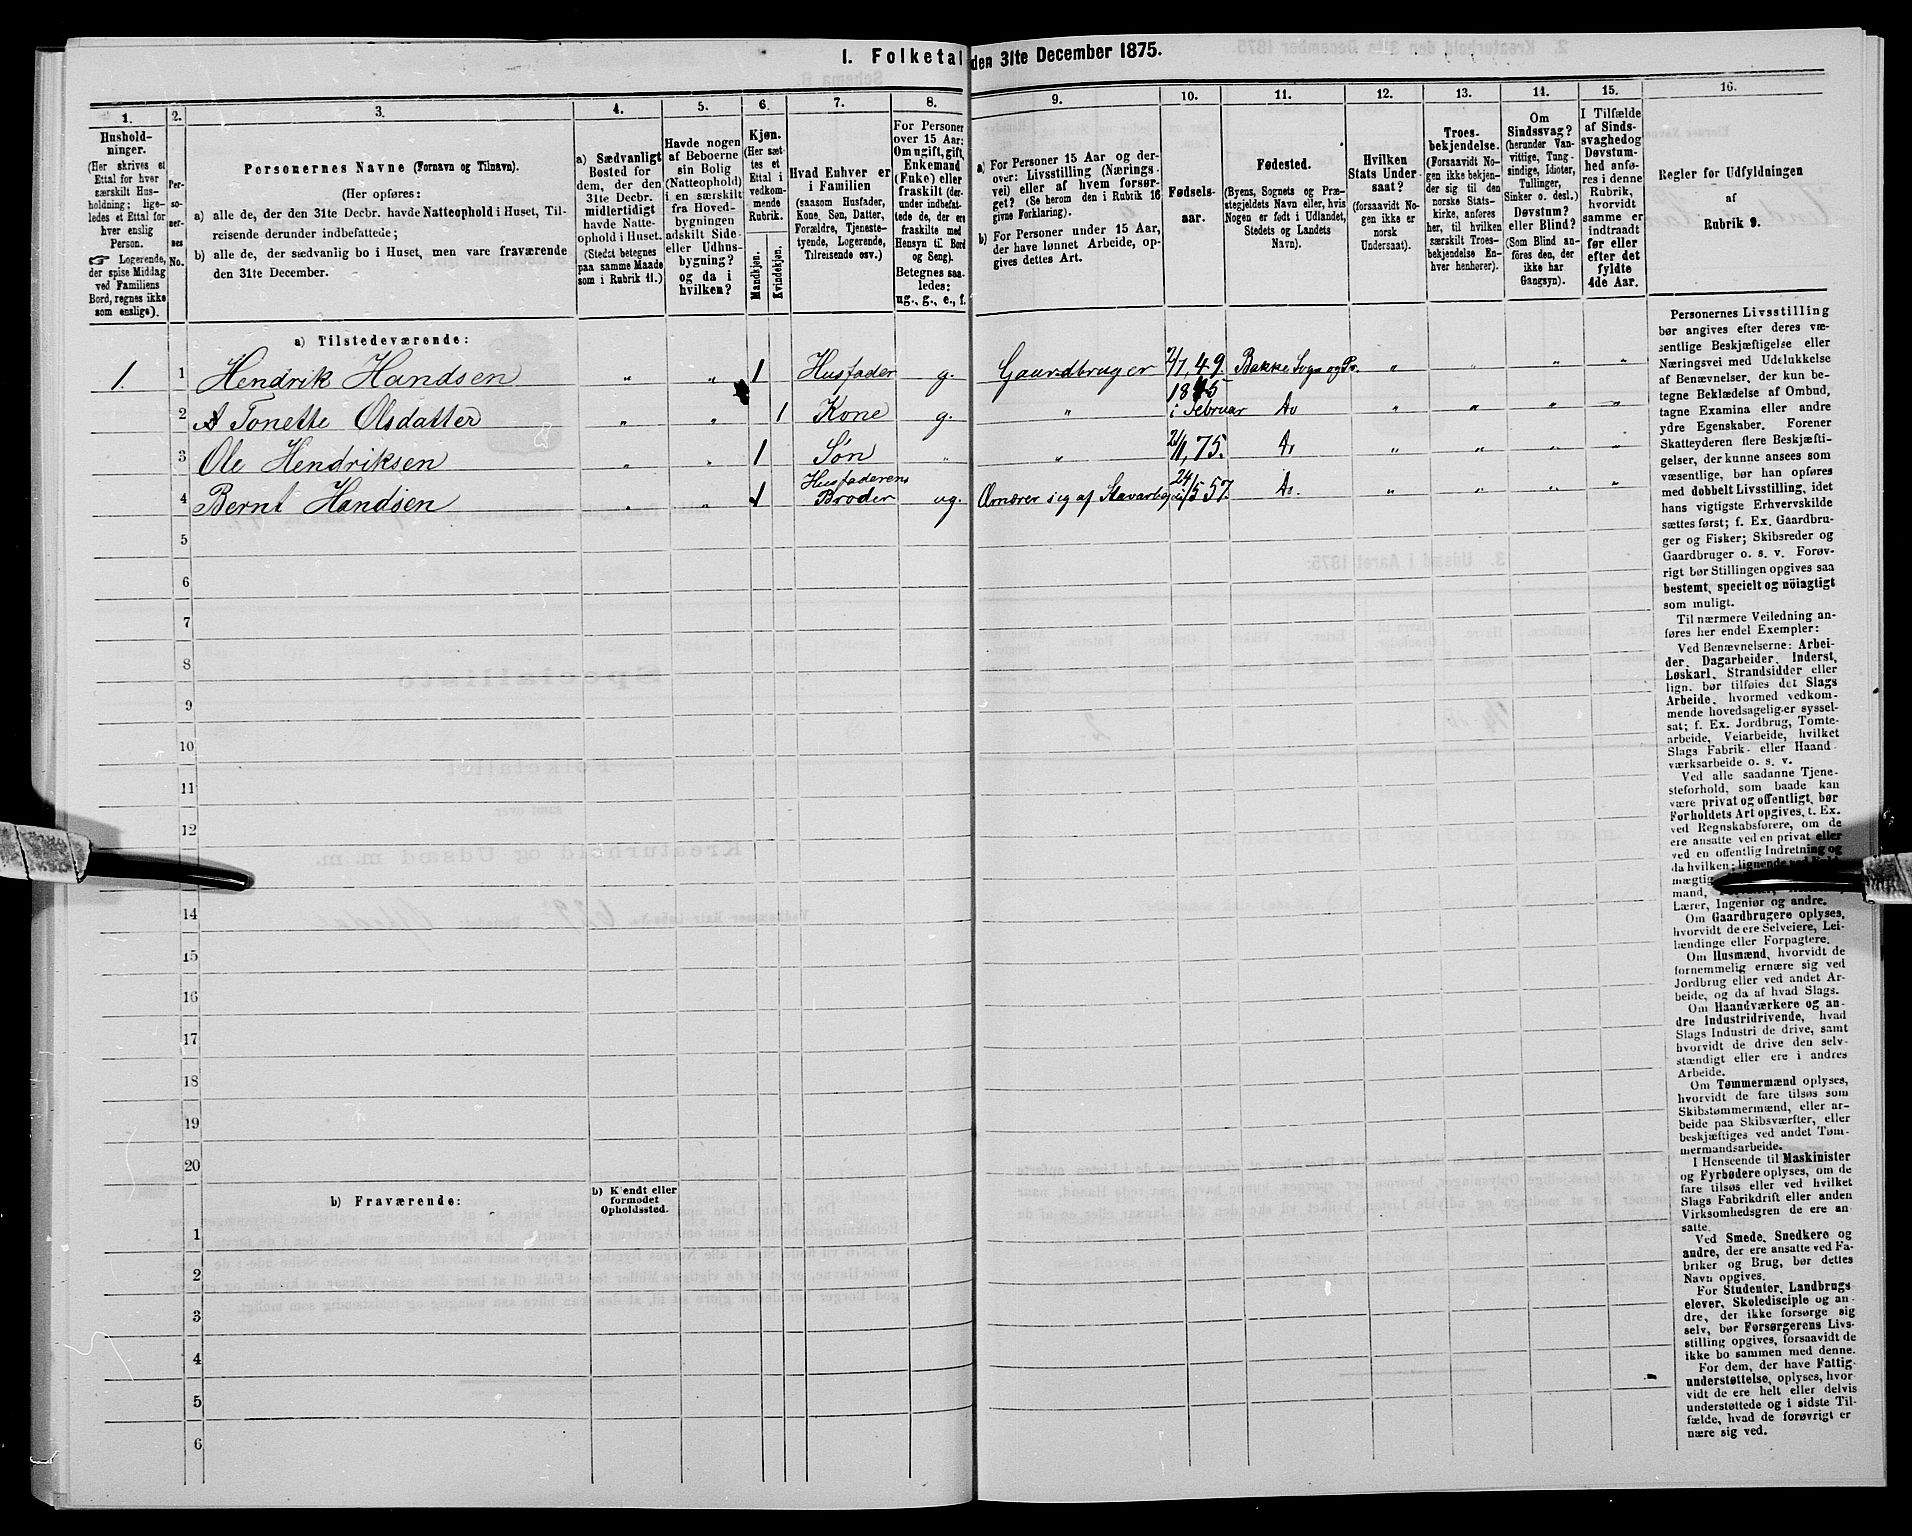 I. Folketal den 31te December 1875.
1. 2. 3. 4. 5. 6. 7. 8. 9. 10. 11. 12. 13. 14. 15. 16.
Hushold-
ninger.
(Her skrives et
Ettal for hver
særskilt Hus-
holdning; lige-
ledes et Ettal for
hver enslig
Person.
☞ Logerende,
der spise Middag
ved Familiens
Bord, regnes ikke
som enslige).
Per-
so-
ner-
nes
No.
Personernes Navne (Fornavn og Tilnavn).
(Her opføres:
a) alle de, der den 31te Decbr. havde Natteophold i Huset, Til-
reisende derunder indbefattede;
b) alle de, der sædvanlig bo i Huset, men vare fraværende
den 31te December.
a) Sædvanligt
Bosted for
dem, der den
31te Decbr.
midlertidigt
havde Natte-
ophold i Huset.
(Stedet betegnes
paa samme Maade
som i Rubrik 11.)
Havde nogen
af Beboerne
sin Bolig
(Natteophold)
i en særskilt
fra Hoved-
bygningen
adskilt Side-
eller Udhus-
bygning?
og da i
hvilken?
Kjøn.
(Her sæt-
tes et
Ettal i
vedkom-
mende
Rubrik.
Mandkjøn.
Kvindekjøn.
Hvad Enhver er
i Familien
(saasom Husfader,
Kone, Søn, Datter,
Forældre, Tjeneste-
tyende, Logerende,
Tilreisende osv.)
For Personer
over 15 Aar:
Om ugift, gift,
Enkemand
(Enke) eller
fraskilt (der-
under indbefat-
tede de, der ere
fraskilte med
Hensyn til Bord
og Seng).
Betegnes saa-
ledes:
ug., g., e., f.
a) For Personer 15 Aar og der-
over: Livsstilling (Nærings-
vei) eller af hvem forsør-
get? (Se herom den i Rubrik 16
givne Forklaring).
b) For Personer under 15 Aar,
der have lønnet Arbeide, op-
gives dettes Art.
Fødsels-
aar.
Fødested.
(Byens, Sognets og Præ-
stegjeldets Navn eller, hvis
Nogen er født i Udlandet,
Stedets og Landets
Navn).
Hvilken
Stats Under-
saat?
(forsaavidt No-
gen ikke er
norsk
Undersaat).
Troes-
bekjendelse.
(Forsaavidt No-
gen ikke bekjen-
der sig til den
norske Stats-
kirke, anføres
her, til hvilken
særskilt Troes-
bekjendelse En-
hver henhører).
Om
Sindssvag?
(herunder Van-
vittige, Tung-
sindige, Idioter,
Tullinger,
Sinker o. desl.)
Døvstum?
eller Blind?
(Som Blind an-
føres den, der
ikke har
Gangsyn).
I Tilfælde
af Sinds-
svaghedog
Døvstum-
hed anfø-
res i denne
Rubrik,
hvorvidt
samme er
indtraadt
før eller
efter det
fyldte
4de Aar.
Regler for Udfyldningen
af
Rubrik 9.
a) Tilstedeværende:
1. 1 Hendrik Handsen „ „ 1 Husfader g. Gaardbruger 2/7, 49. Bakke Sogn og Pr. „ „ „
2 A Tonette Olsdatter „ „ 1 Kone g. „ 1845 i Februar do „ „ „ „
3 Ole Hendriksen „ „ 1 Søn „ „ 2/11, 75. do „ „ „ „
4 Bernt Handsen „ „ 1 Husfaderens Broder ug. Ernærer sig af 24/5 57. do. „ „ „ „
5
6
7
8
9
10
11
12
14
15
16
17
18
19
20
b) Fraværende:
b) Kjendt eller
formodet
Opholdssted.
1
2
3
4
5
6
Personernes Livsstilling
bør angives efter deres væ-
sentlige Beskjæftigelse eller
Næringsvei med Udelukkelse
af Benævnelser, der kun be-
tegne Beklædelse af Ombud,
tagne Examina eller andre
ydre Egenskaber. Forener
Skatteyderen flere Beskjæfti-
gelser, der kunne ansees som
væsentlige, bør han opføres
med dobbelt Livsstilling, idet
hans vigtigste Erhvervskilde
sættes først; f. Ex. Gaardbru-
ger og Fisker; Skibsreder og
Gaardbruger o. s. v. Forøv-
rigt bør Stillingen opgives saa
bestemt, specielt og nöiagtigt
som muligt.
Til nærmere Veiledning an-
føres her endel Exempler:
Ved Benævnelserne: Arbei-
der, Dagarbeider, Inderst,
Løskarl, Strandsidder eller
lign. bør tilføies det Slags
Arbeide, hvormed vedkom-
mende hovedsagelig er syssel-
sat; f. Ex. Jordbrug, Tomte-
arbeide, Veiarbeide, hvilket
Slags Fabrik- eller Haand-
værksarbeide o. s. v.
Ved alle saadanne Tjene-
steforhold, som baade kan
være privat og offentligt, bør
Forholdets Art opgives, t. Ex.
ved Regnskabsførere, om de
ere ansatte ved en privat eller
ved en offentlig Indretning og
da hvilken; lignende ved Fuld-
mægtig,
mand,
Lærer, Ingeniør og andre.
Om Gaardbrugere oplyses,
hvorvidt de ere Selveiere, Lei-
lændinge eller Forpagtere.
Om Husmænd, hvorvidt de
fornemmelig ernære sig ved
Jordbrug eller ved andet Ar-
beide, og da af hvad Slags.
Om Haandværkere og an-
dre Industridrivende, hvad
Slags Industri de drive, samt
hvorvidt de drive den selv-
stændigt eller ere i andres
Arbeide.
Om Tømmermænd oplyses,
hvorvidt de fare tilsøs som
Skibstømmermænd, eller ar-
beide paa Skibsværfter, eller
beskjæftiges ved andet Tøm-
mermandsarbeide.
I Henseende til Maskinister
og Fyrbødere oplyses, om de
fare tilsøs eller ved hvilket
Slags Fabrikdrift eller anden
Virksomhedsgren de ere an-
satte.
Ved Smede, Snedkere og
andre, der ere ansatte ved Fa-
briker og Brug, bør dettes
Navn opgives.
For Studenter, Landbrugs-
elever, Skoledisciple og an-
dre, der ikke forsørge sig
selv, bør Forsørgerens Livs-
stilling opgives, forsaavidt de
ikke bo sammen med denne.
For dem, der have Fattig-
understøttelse, oplyses, hvor-
vidt de ere helt eller delvis
understøttede og i sidste Til-
fælde, hvad de forøvrigt er
nære sig ved.